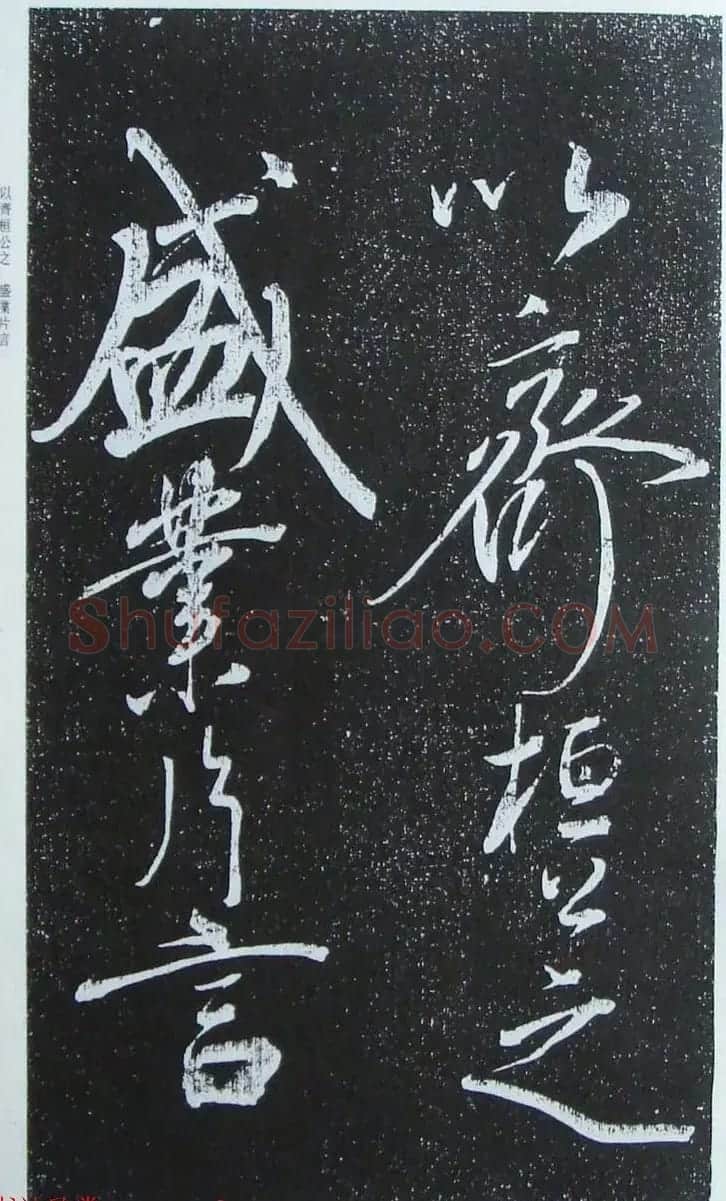 以齊桓公之
盛業片言
以齊桓公之 盛業片言
Shufaziliao.COM